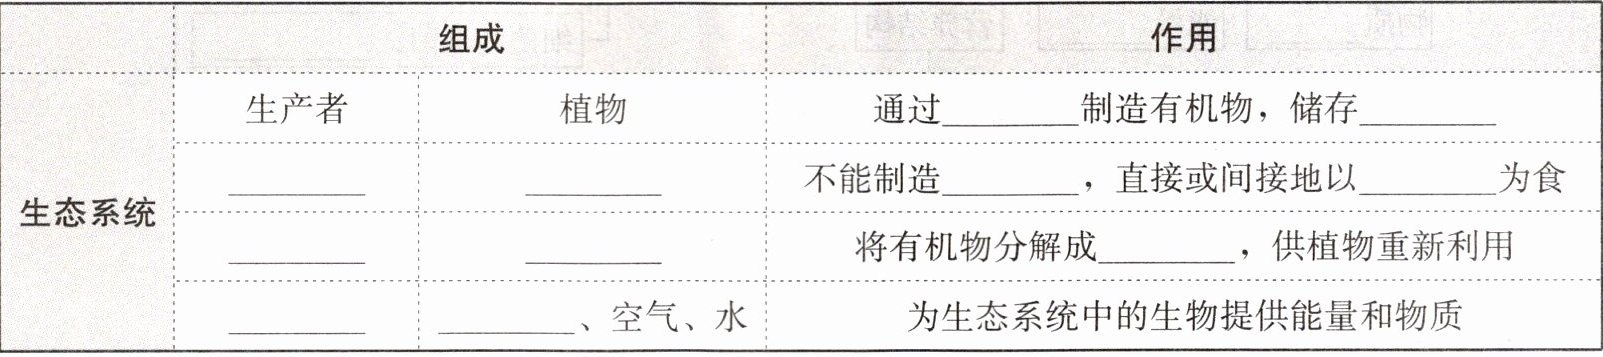 组成 作用
生产者 植物 通过________制造有机物，储存________
________ ________ 不能制造________，直接或间接地以________为食
生态系统
________ ________ 将有机物分解成________，供植物重新利用
________ ________、空气、水 为生态系统中的生物提供能量和物质